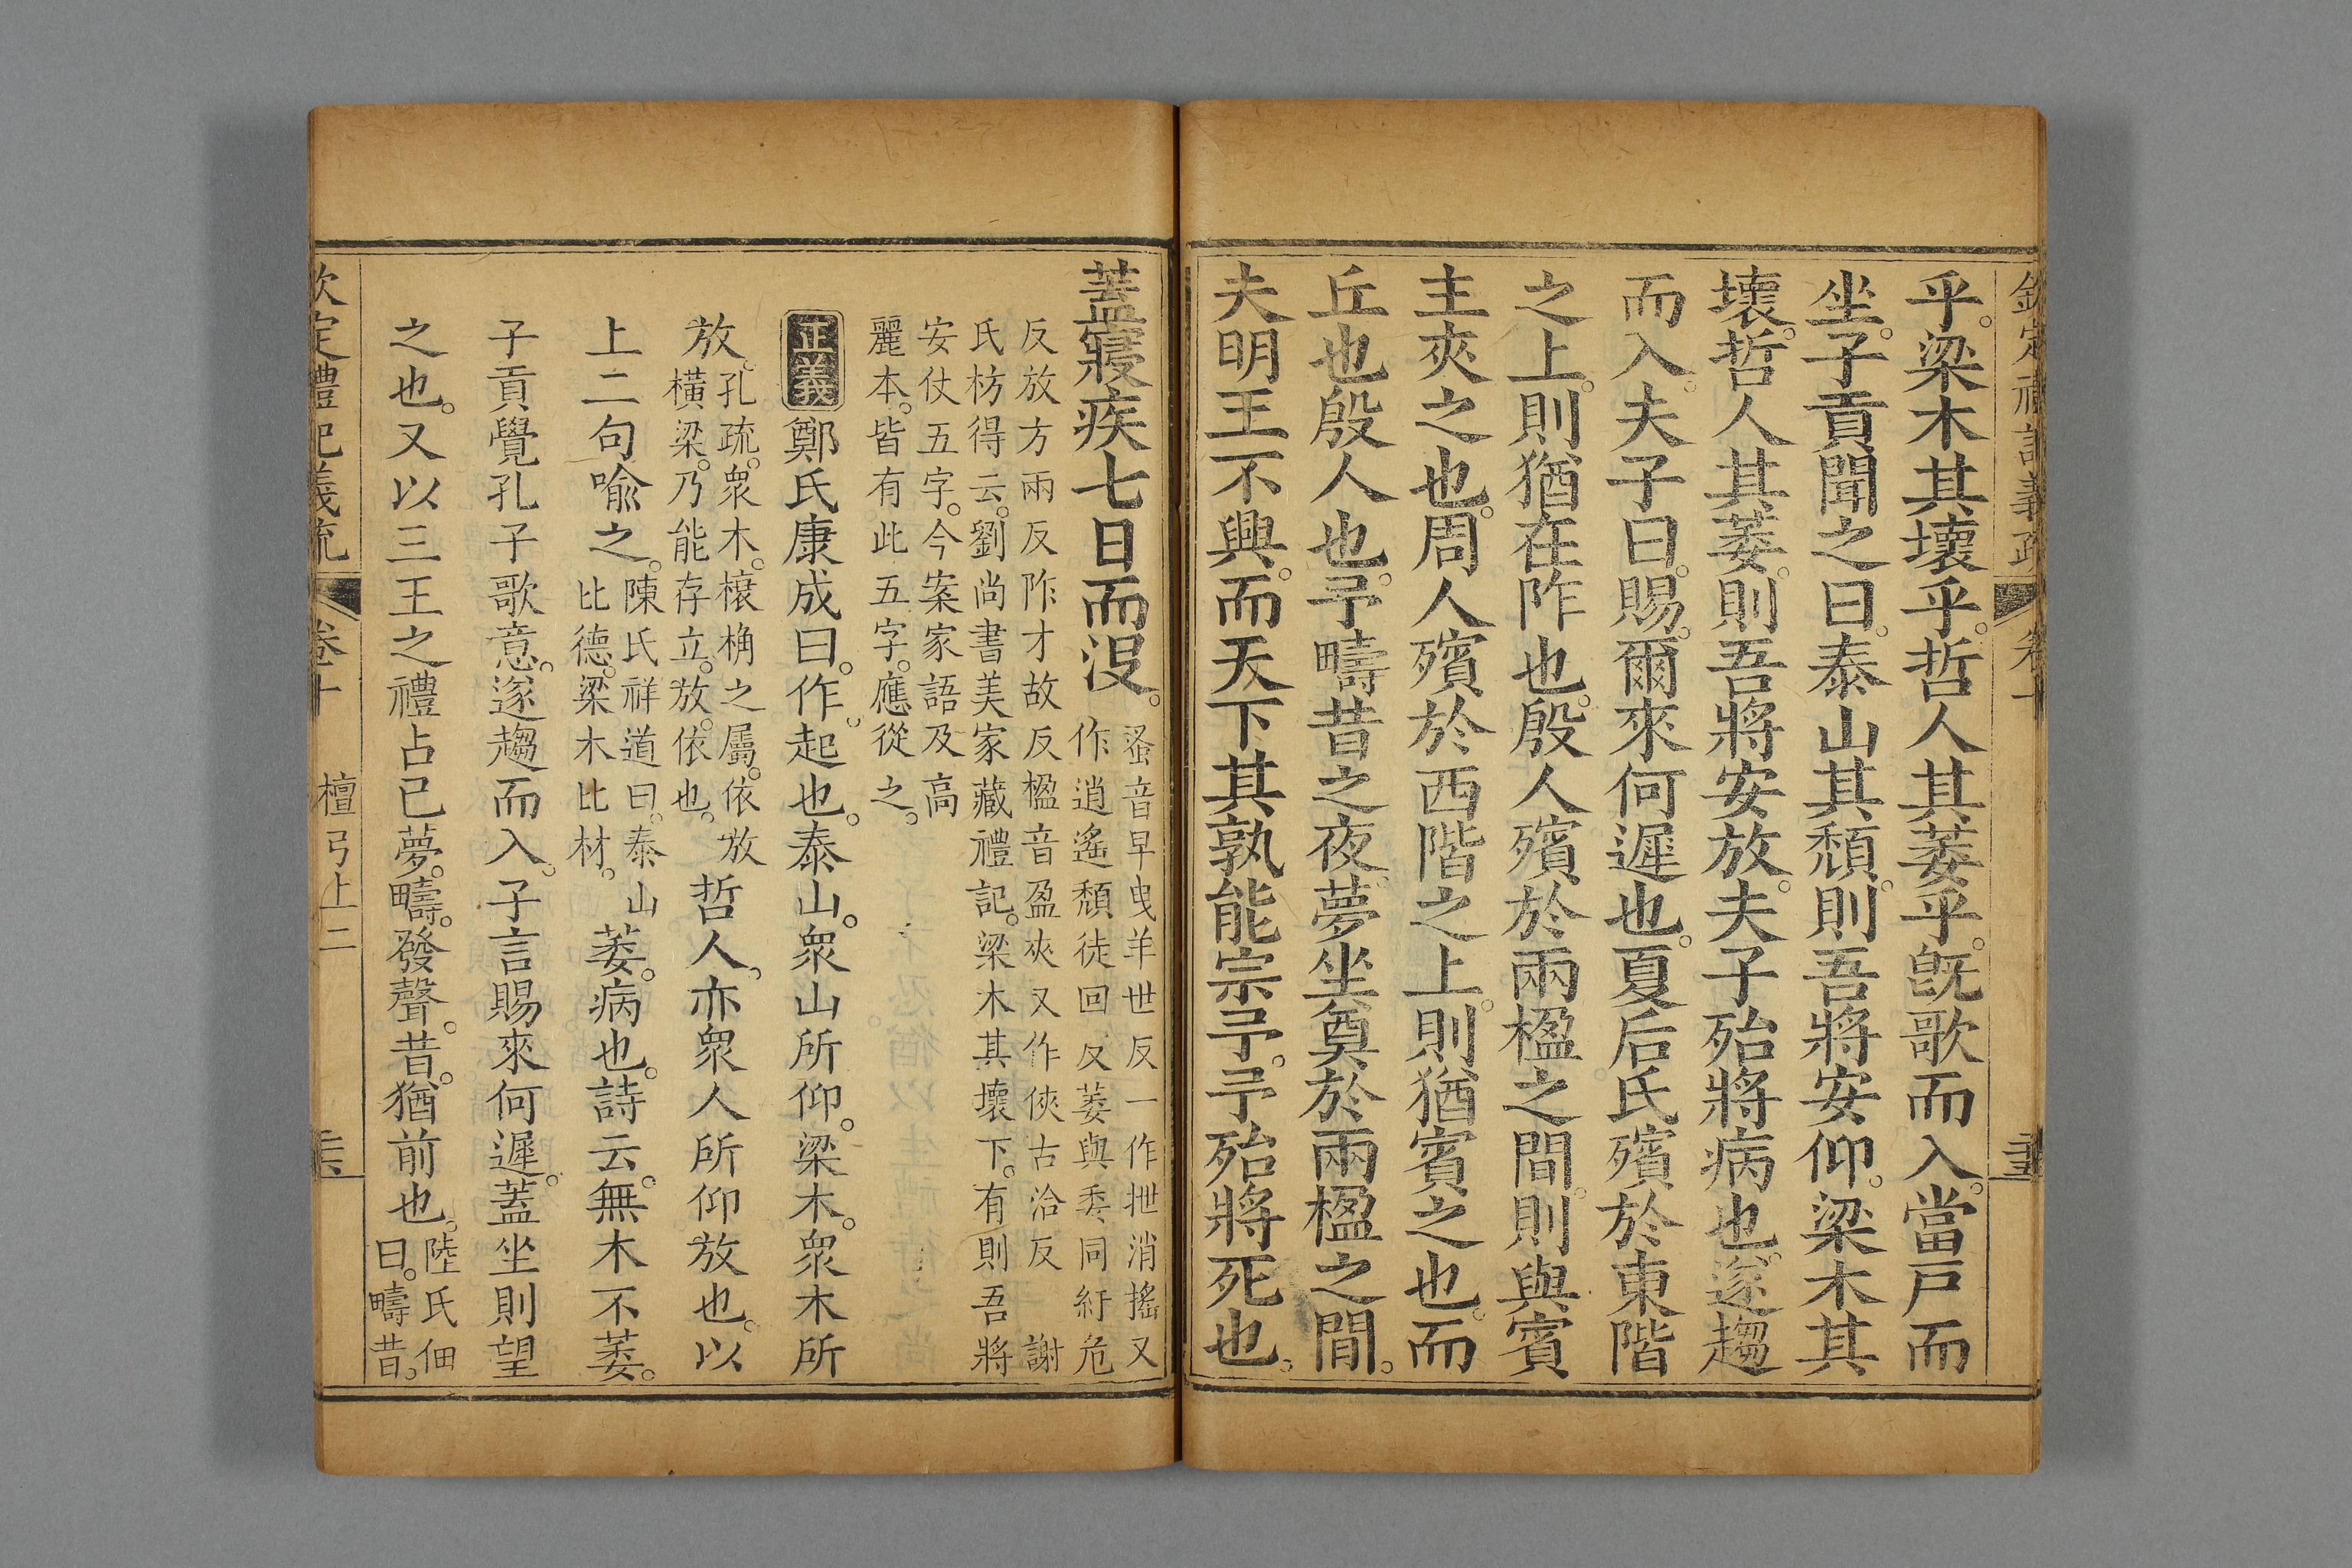 欽定禮記義疏 卷十
乎。梁木其壞乎。哲人其萎乎。旣歌而入。當戸而
坐。子貢聞之曰。泰山其頹。則吾將安仰。梁木其
壞。哲人其萎。則吾將安放。夫子殆將病也。遂趨
而入。夫子曰。賜。爾來何遲也。夏后氏殯於東階
之上。則猶在阼也。殷人殯於兩楹之間。則與賓
主夾之也。周人殯於西階之上。則猶賓之也。而
丘也殷人也。予疇昔之夜。夢坐奠於兩楹之間。
夫明王不興。而天下其孰能宗予。予殆將死也。
蓋寢疾七日而沒。
蚤音早曳羊世反一作抴消搖又
作逍遙頹徒回反萎與委同紆危
反放方兩反阼才故反楹音盈夾又作俠古洽反 謝
氏枋得云。劉尚書美家藏禮記。梁木其壞下。有則吾將
安仗五字。今案家語及高
麗本。皆有此五字。應從之。
正義 鄭氏康成曰。作。起也。泰山。衆山所仰。梁木。衆木所
放。
孔疏。衆木。榱桷之屬。依放
橫梁。乃能存立。放。依也。
哲人。亦衆人所仰放也。以
上二句喩之。
陳氏祥道曰。泰山
比德。梁木比材。
萎。病也。詩云。無木不萎。
子貢覺孔子歌意。遂趨而入。子言賜來何遲。蓋坐則望
之也。又以三王之禮占己夢。疇。發聲。昔。猶前也。
陸氏佃
曰。疇昔。
欽定禮記義疏 卷十 檀弓上二